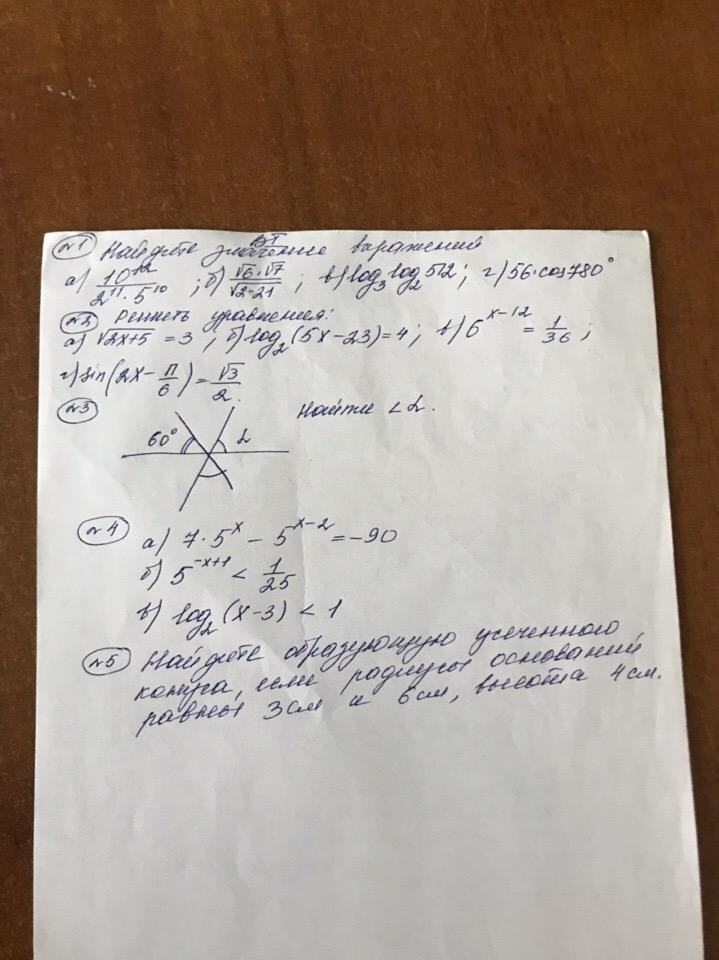 №1 Найдите значение выражений
а) 10¹²/(2¹¹·5¹⁰); б) √6·√7/√2·21; в) log₃log₂512; г) 56·cos780°
№2 Решить уравнения:
а) √2x+5 = 3; б) log₂(5x-23)=4; в) 6^(x-12) = 1/36;
г) sin(2x-π/6)=√3/2.
№3 Найти <α.
60° α
№4 а) 7·5^x - 5^(x-2) = -90
б) 5^(-x+1) < 1/25
в) log₂(x-3) < 1
№5 Найдите образующую усеченного
конуса, если радиусы оснований
равны 3см и 6см, высота 4см.